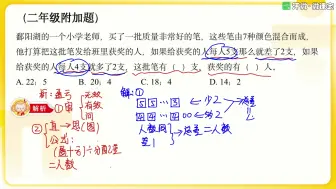 (二年级附加题)
鄱阳湖的一个小学老师，买了一批质量非常好的笔。这些笔由7种颜色混合而成。
他们打算把这批笔发给班里获奖的人。如果给获奖的人每人5支那么就差了2支。如果
给获奖的人每人4支就多了2支。这批笔有（ ）支。获奖的有（ ）人。
A. 22；5 B. 20；4 C. 18；4 D. 14；2
解析
析：盈亏
① 审
无效
有效
问
② 直→思(图)
公式：
(盈+亏)÷分配之差
=人数
解：①
5 5 … 5 ← 少2
4 4 … 4 ← 多2
人数同
差1
总差=人数